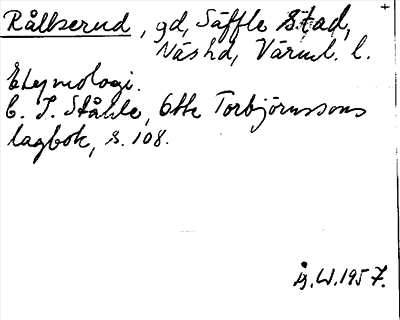 Rålkserud, gd, Säffle stad,
Näs hd, Värml. l.
Etymologi.
C. I. Ståhle, Otte Torbjörnssons
lagbok, s. 108.
W. 1957.